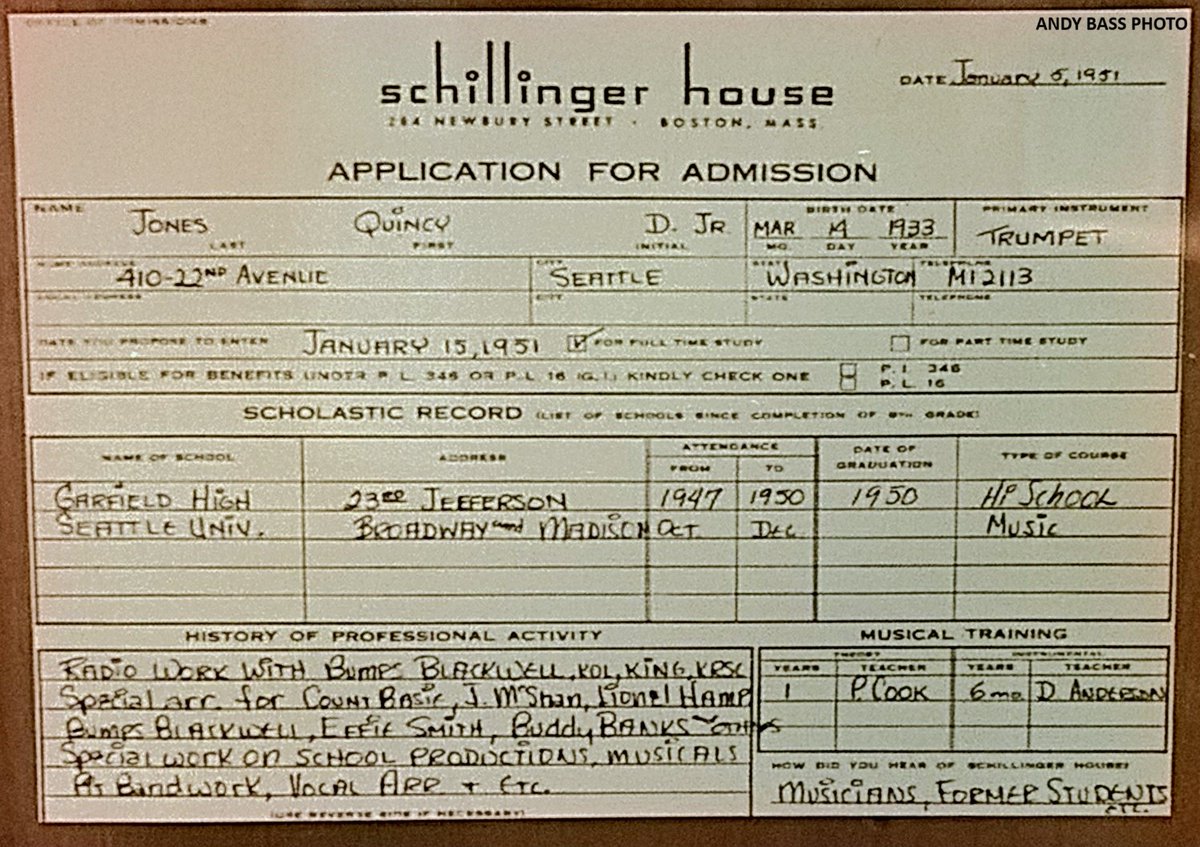 ANDY BASS PHOTO
OFFICE OF ADMISSIONS
DATE January 5, 1951
schillinger house
284 NEWBURY STREET · BOSTON, MASS.
APPLICATION FOR ADMISSION
NAME BIRTH DATE PRIMARY INSTRUMENT
JONES QUINCY D. JR. MAR 14 1933 TRUMPET
LAST FIRST INITIAL MO. DAY YEAR
HOME ADDRESS CITY STATE TELEPHONE
410-22ND AVENUE SEATTLE WASHINGTON MI2113
LOCAL ADDRESS CITY STATE TELEPHONE
DATE YOU PROPOSE TO ENTER JANUARY 15, 1951 FOR FULL TIME STUDY FOR PART TIME STUDY
IF ELIGIBLE FOR BENEFITS UNDER P. L. 346 OR P. L. 16 (G.I.) KINDLY CHECK ONE P. L. 346
P. L. 16
SCHOLASTIC RECORD (LIST OF SCHOOLS SINCE COMPLETION OF 8TH GRADE)
NAME OF SCHOOL ADDRESS ATTENDANCE DATE OF GRADUATION TYPE OF COURSE
FROM TO
GARFIELD HIGH 23RD JEFFERSON 1947 1950 1950 Hi SCHOOL
SEATTLE UNIV. BROADWAY and MADISON OCT. DEC. MUSIC
HISTORY OF PROFESSIONAL ACTIVITY MUSICAL TRAINING
THEORY INSTRUMENTAL
YEARS TEACHER YEARS TEACHER
RADIO WORK WITH BUMPS BLACKWELL, KOL, KING, KRSC
1 P. COOK 6 mo. D ANDERSON
Special arr. for COUNT BASIE, J. McShan, Lionel HAMP
BUMPS BLACKWELL, EFFIE SMITH, Buddy BANKS
Special work on SCHOOL PRODUCTIONS, MUSICALS
Bandwork, VOCAL ARR + ETC.
(USE REVERSE SIDE IF NECESSARY)
HOW DID YOU HEAR OF SCHILLINGER HOUSE?
MUSICIANS, FORMER STUDENTS
ETC.